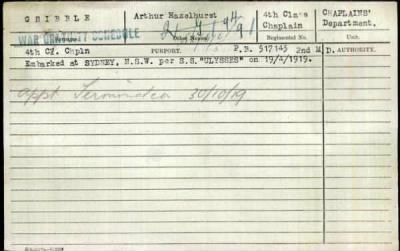 GRIBBLE Arthur Hazelhurst 4th Class Chaplain CHAPLAINS' Department.
WAR GRATUITY SCHEDULE Regimental No. Unit.
4th Cl. Chpln PURPORT. P.B. 517145 2nd M D. AUTHORITY.
Embarked at SYDNEY, N.S.W. per S.S."ULYSSES" on 19/4/1919.
Appt. Terminated 30/10/19